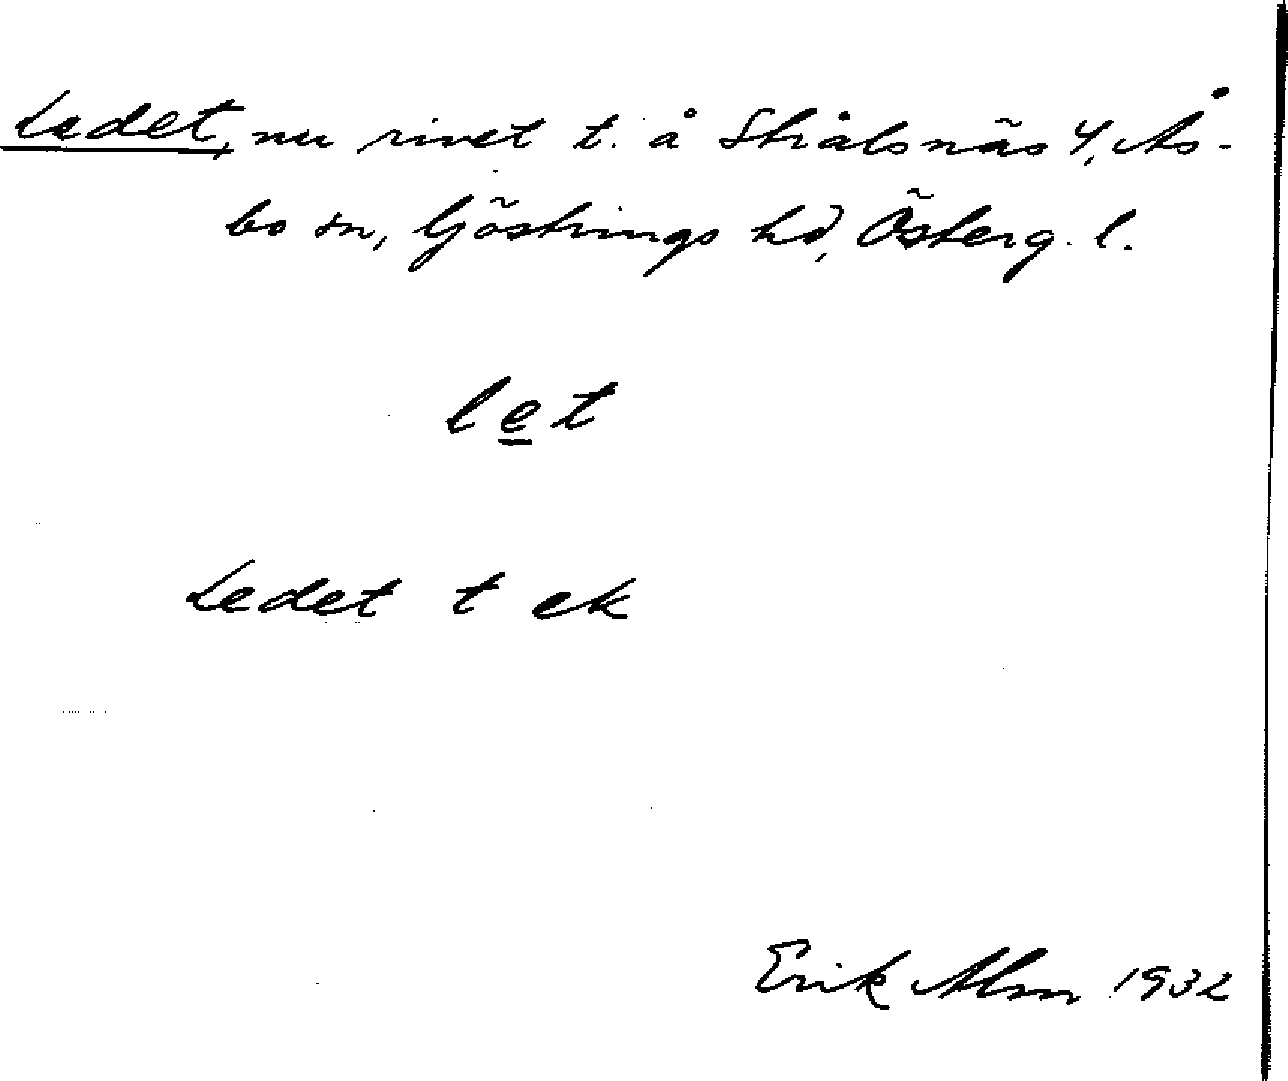 Ledet, nu rivet t. å Strålsnäs 4, Ås-
bo sn, Göstrings hd, Österg. l.
let
Ledet t ek
Erik Alm 1932